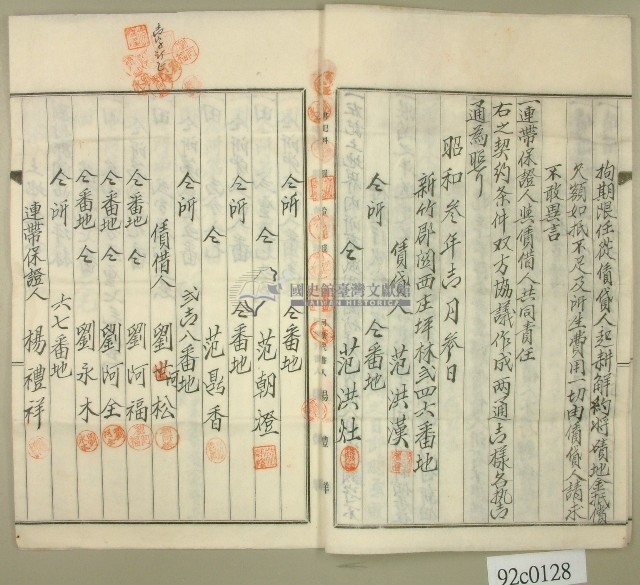 拘期限任從償貸人起耕解約將磧地金抵償
欠額如抵不足及所生費用一切由償貸人請求
不敢異言
一連帶保證人與償借人共同責任
右之契約条件双方協議作成兩通吉樣名執吉
通為照
昭和叁年吉月叁日
新竹郡関西庄坪林弍四六番地
償貸人 范洪漢
仝所 仝番地
仝 范洪灶
仝所 仝番地
仝 范朝澄
仝所 仝番地
仝 范晷香
仝所 弍吉八番地
償借人 劉阿松
仝番地 仝 劉阿福
仝番地 仝 劉阿全
仝番地 仝 劉永木
仝所 六七番地
連帶保證人 楊禮祥
國史館臺灣文獻館
TAIWAN HISTORICA
92c0128